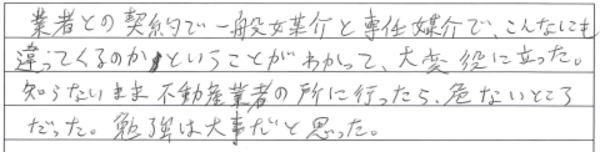 業者との契約で一般媒介と専任媒介で、こんなにも
違ってくるのかということがわかって、大変役に立った。
知らないまま不動産業者の所に行ったら、危ないところ
だった。勉強は大事だと思った。